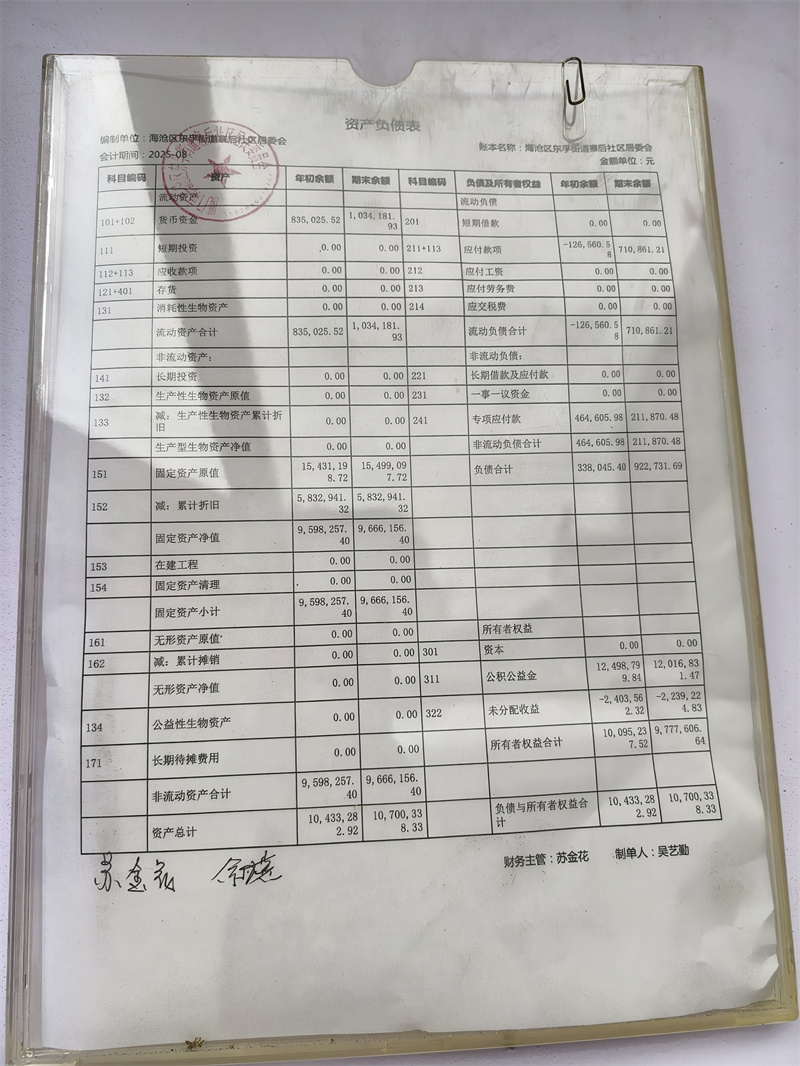 资产负债表
编制单位：海沧区东孚街道寨后社区居委会 账本名称：海沧区东孚街道寨后社区居委会
会计期间：2025-08 金额单位：元
科目编码 资产 年初余额 期末余额 科目编码 负债及所有者权益 年初余额 期末余额
流动资产 流动负债
101+102 货币资金 835,025.52 1,034,181.93 201 短期借款 0.00 0.00
111 短期投资 0.00 0.00 211+113 应付款项 -126,560.58 710,861.21
112+113 应收款项 0.00 0.00 212 应付工资 0.00 0.00
121+401 存货 0.00 0.00 213 应付劳务费 0.00 0.00
131 消耗性生物资产 0.00 0.00 214 应交税费 0.00 0.00
流动资产合计 835,025.52 1,034,181.93 流动负债合计 -126,560.58 710,861.21
非流动资产： 非流动负债：
141 长期投资 0.00 0.00 221 长期借款及应付款 0.00 0.00
132 生产性生物资产原值 0.00 0.00 231 一事一议资金 0.00 0.00
133 减：生产性生物资产累计折旧 0.00 0.00 241 专项应付款 464,605.98 211,870.48
生产型生物资产净值 0.00 0.00 非流动负债合计 464,605.98 211,870.48
151 固定资产原值 15,431,198.72 15,499,097.72 负债合计 338,045.40 922,731.69
152 减：累计折旧 5,832,941.32 5,832,941.32
固定资产净值 9,598,257.40 9,666,156.40
153 在建工程 0.00 0.00
154 固定资产清理 0.00 0.00
固定资产小计 9,598,257.40 9,666,156.40
161 无形资产原值 0.00 0.00 所有者权益
162 减：累计摊销 0.00 0.00 301 资本 0.00 0.00
无形资产净值 0.00 0.00 311 公积公益金 12,498,799.84 12,016,831.47
134 公益性生物资产 0.00 0.00 322 未分配收益 -2,403,562.32 -2,239,224.83
171 长期待摊费用 0.00 0.00 所有者权益合计 10,095,237.52 9,777,606.64
非流动资产合计 9,598,257.40 9,666,156.40
资产总计 10,433,282.92 10,700,338.33 负债与所有者权益合计 10,433,282.92 10,700,338.33
财务主管：苏金花 制单人：吴艺勤
苏金花